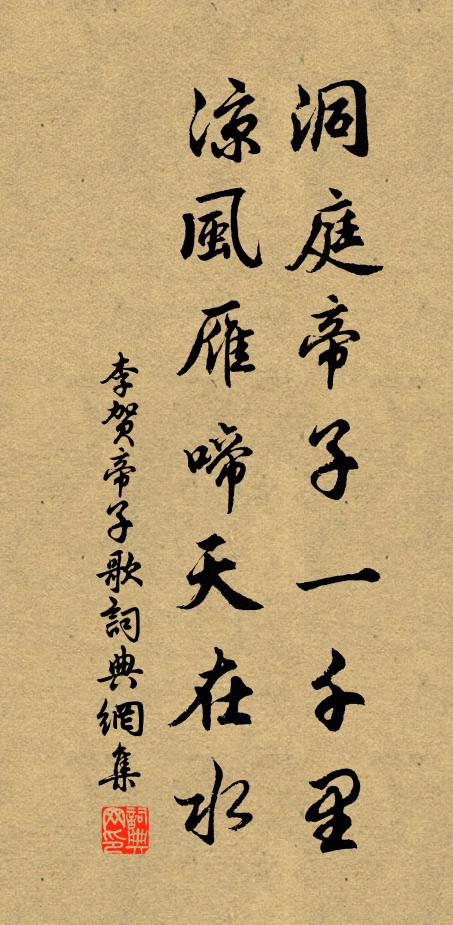 洞庭帝子一千里
涼風雁啼天在水
李贺帝子歌詞典網集
詞典网印